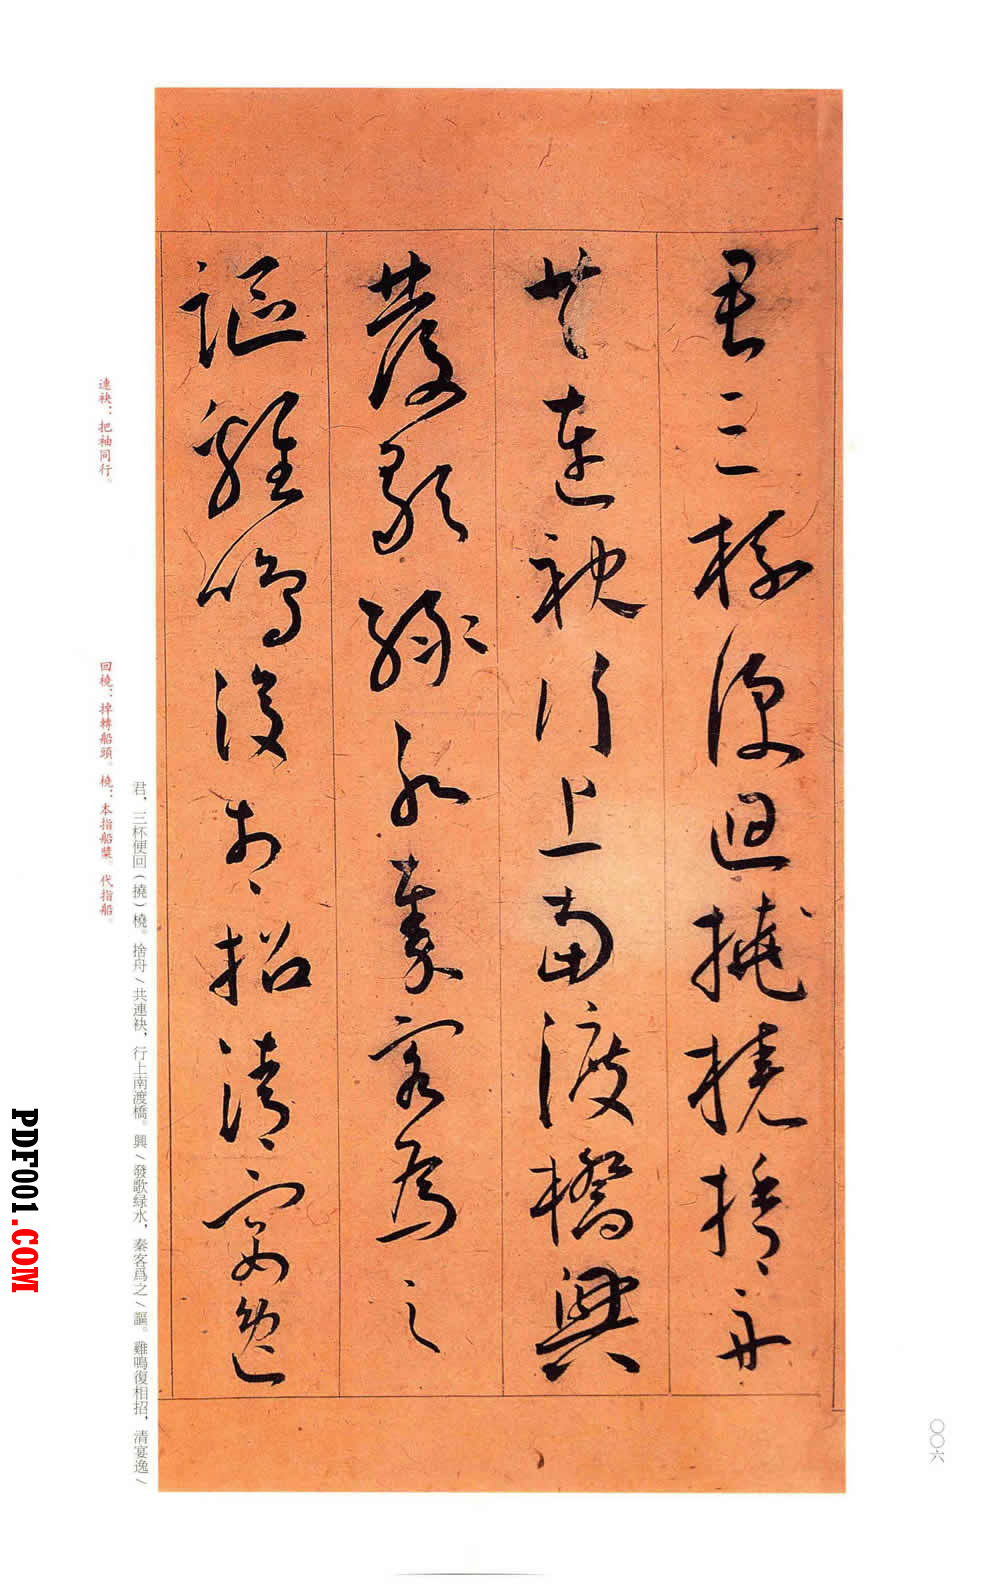 君三杯便迴撓橈捨舟
共連袂行上南渡橋興
發歌緑水秦客爲之
謳雞鳴復相招清宴逸
君，三杯便回（撓）橈。捨舟\共連袂，行上南渡橋。興\發歌緑水，秦客爲之\謳。雞鳴復相招，清宴逸\
連袂：把袖同行。
回橈：掉轉船頭。橈：本指船槳。代指船。
〇〇六
PDF001.COM